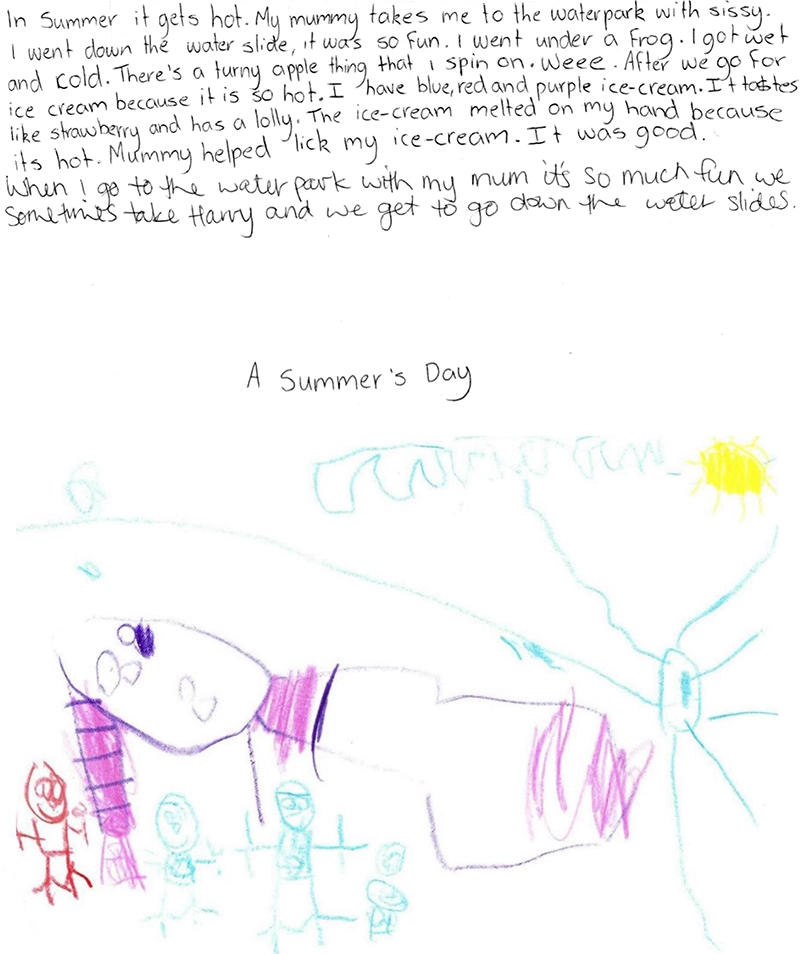 In Summer it gets hot. My mummy takes me to the waterpark with sissy.
I went down the water slide, it was so fun. I went under a frog. I got wet
and cold. There's a turny apple thing that i spin on. Weee. After we go for
ice cream because it is so hot. I have blue, red and purple ice-cream. It tastes
like strawberry and has a lolly. The ice-cream melted on my hand because
its hot. Mummy helped lick my ice-cream. It was good.
When I go to the water park with my mum it's so much fun we
sometimes take Harry and we get to go down the water slides.
A Summer's Day